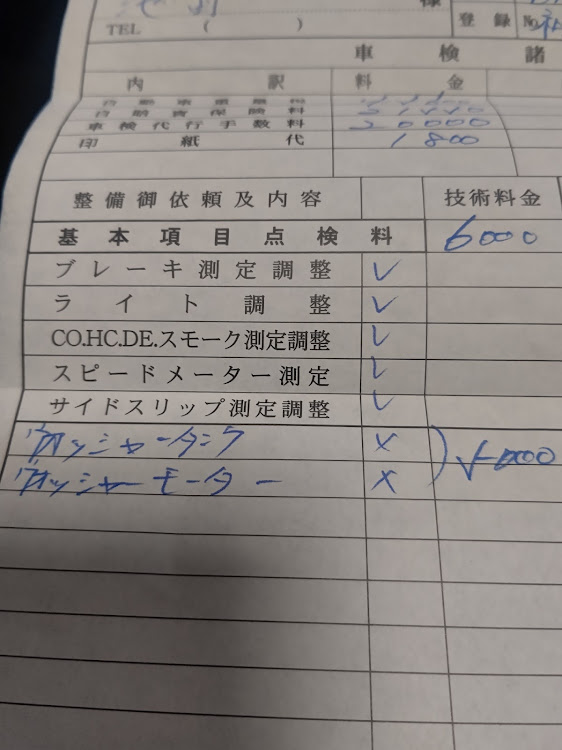 様
TEL ( )
登録 No.
車検諸
内訳 料金
車検代行手数料 20000
印紙代 1800
整備御依頼及内容 技術料金
基本項目点検料 6000
ブレーキ測定調整 ✓
ライト調整 ✓
CO.HC.DE.スモーク測定調整 ✓
スピードメーター測定 ✓
サイドスリップ測定調整 ✓
ウォッシャータンク ×
ウォッシャーモーター ×